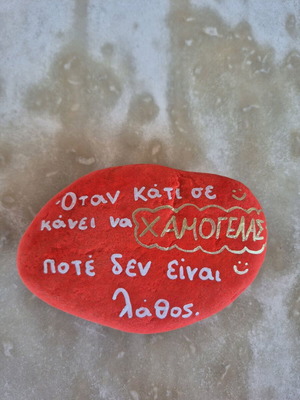 Όταν κάτι σε
κάνει να ΧΑΜΟΓΕΛΑΣ
ποτέ δεν είναι
λάθος.